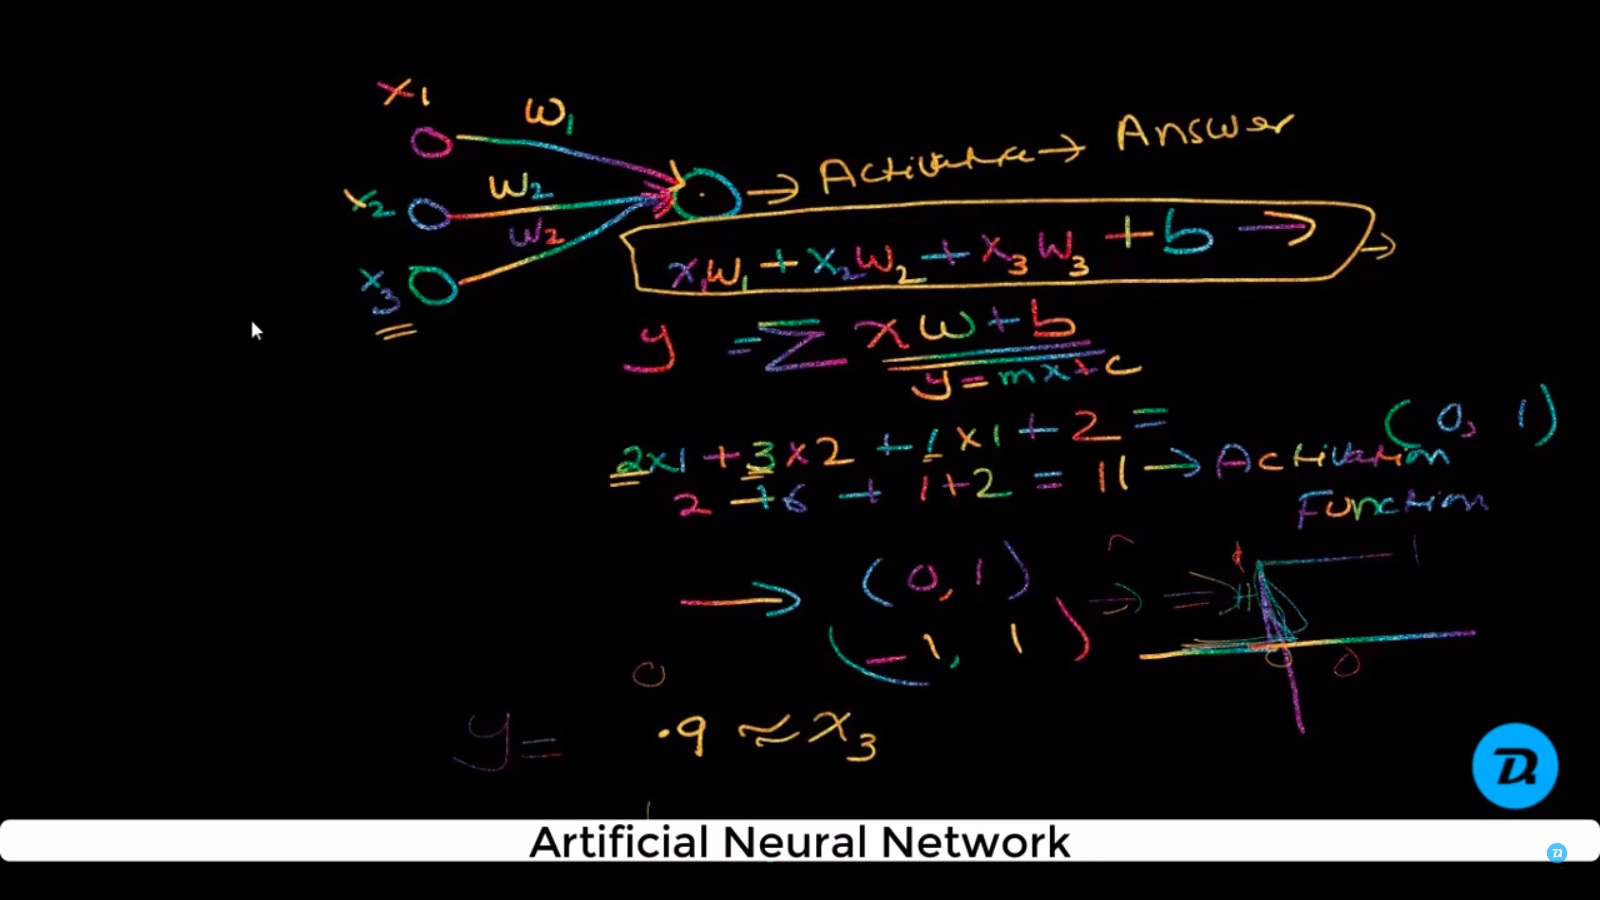 x1
w1
x2
w2
w2
x3
→ Activation → Answer
x1w1 + x2w2 + x3w3 + b →
y = Σ xw + b
y = mx + c
(0, 1)
2x1 + 3x2 + 1x1 + 2 =
2 + 6 + 1 + 2 = 11 → Activation
Function
→ (0, 1)
(-1, 1)
1
0
0
0
y = .9 ≈ x3
Artificial Neural Network